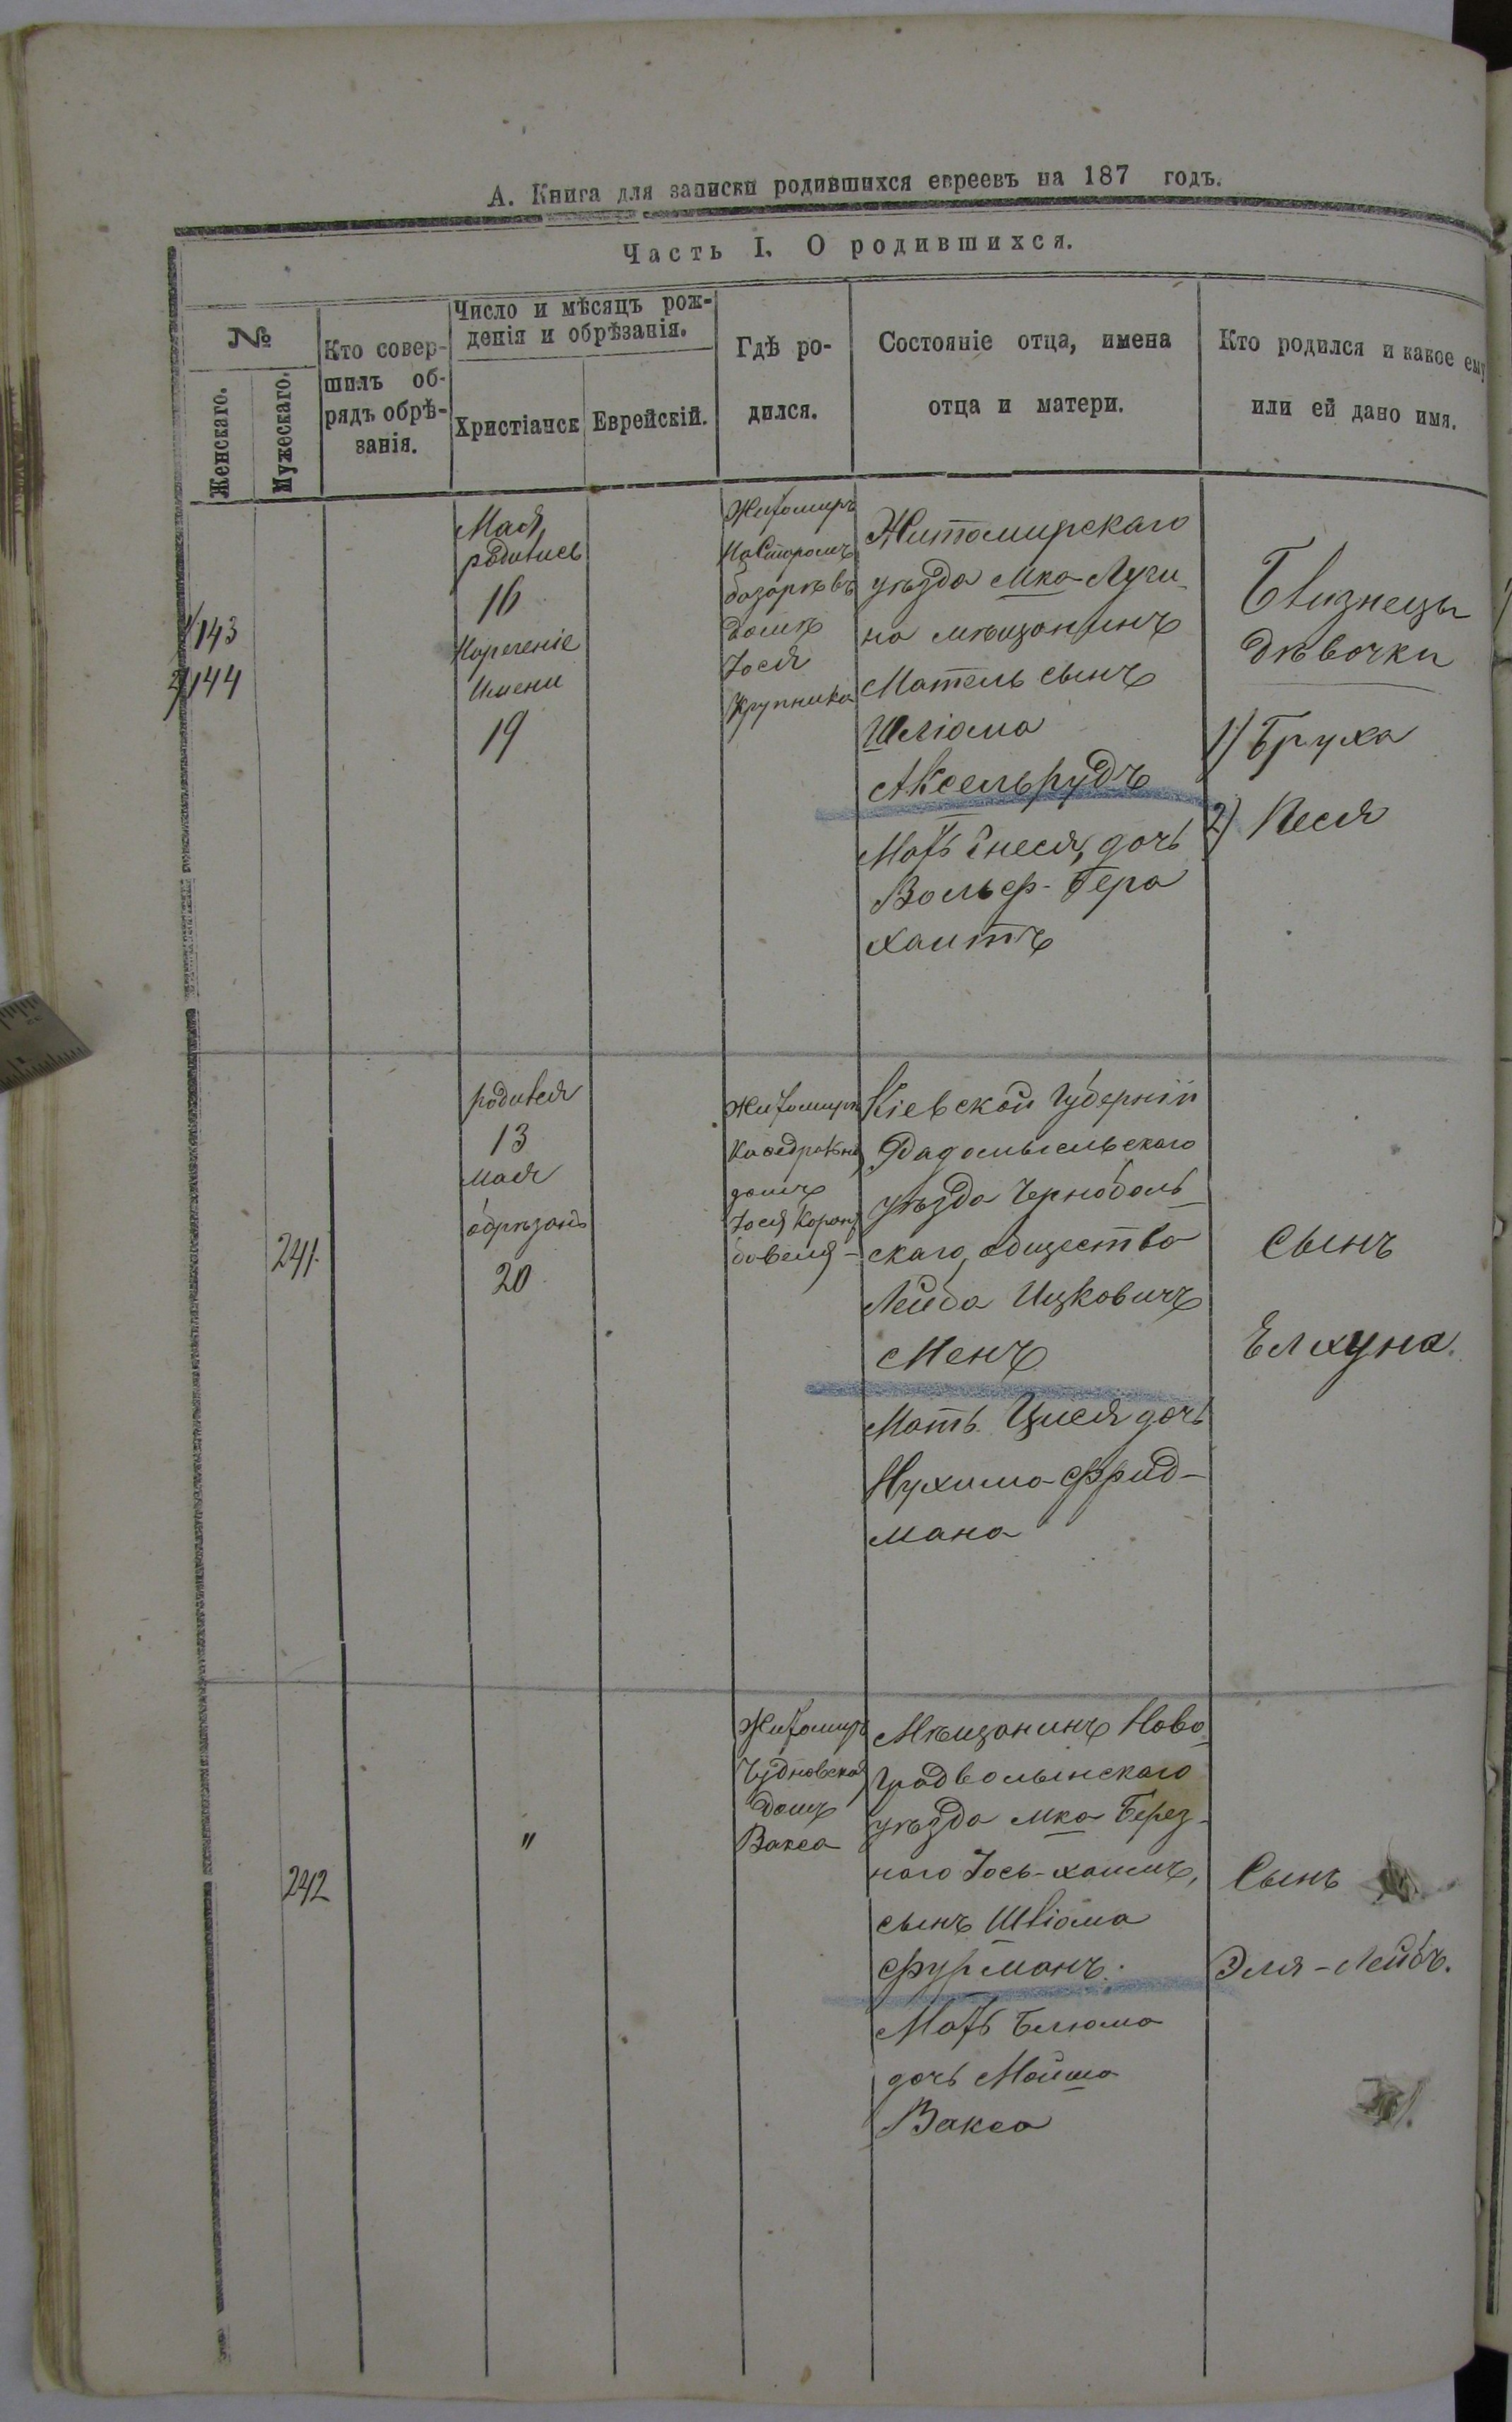 А. Книга для записки родившихся евреевъ на 187 годъ.
Часть I. О родившихся.
№
Женскаго.
Мужескаго.
Кто совер-
шилъ об-
рядъ обрѣ-
занія.
Число и мѣсяцъ рож-
денія и обрѣзанія.
Христіанск
Еврейскій.
Гдѣ ро-
дился.
Состояніе отца, имена
отца и матери.
Кто родился и какое ему
или ей дано имя.
1/143
2/144
Мая
родились
16
Нареченіе
Имени
19
Житомиръ
На Старомъ
базарѣ въ
домѣ
Іося
Крупника
Житомирскаго
уѣзда Мка Луги-
на мѣщанинъ
Мотель сынъ
Шліома
Аксельрудъ
Мать Гнеся, дочь
Вольф-Гера
хаитъ
Близнецы
дѣвочки
1) Бруха
2) Песя
241.
родился
13
мая
обрѣзанъ
20
Житомиръ
домъ
Іося
Кіевской Губерніи
Радомысльскаго
уѣзда Чернобыль-
скаго, общества
Лейба Ицковичъ
Менъ
Мать Цися дочь
Нухима Фрид-
мана
Сынъ
Елхуна.
242
"
Житомиръ
Чудновская
домъ
Вакса
Мѣщанинъ Ново-
градволынскаго
уѣзда мка Берез-
наго Іось-хаимъ,
сынъ Шліома
Фурманъ.
Мать Блюма
дочь Мойша
Вакса
Сынъ
Эля-Лейбъ.